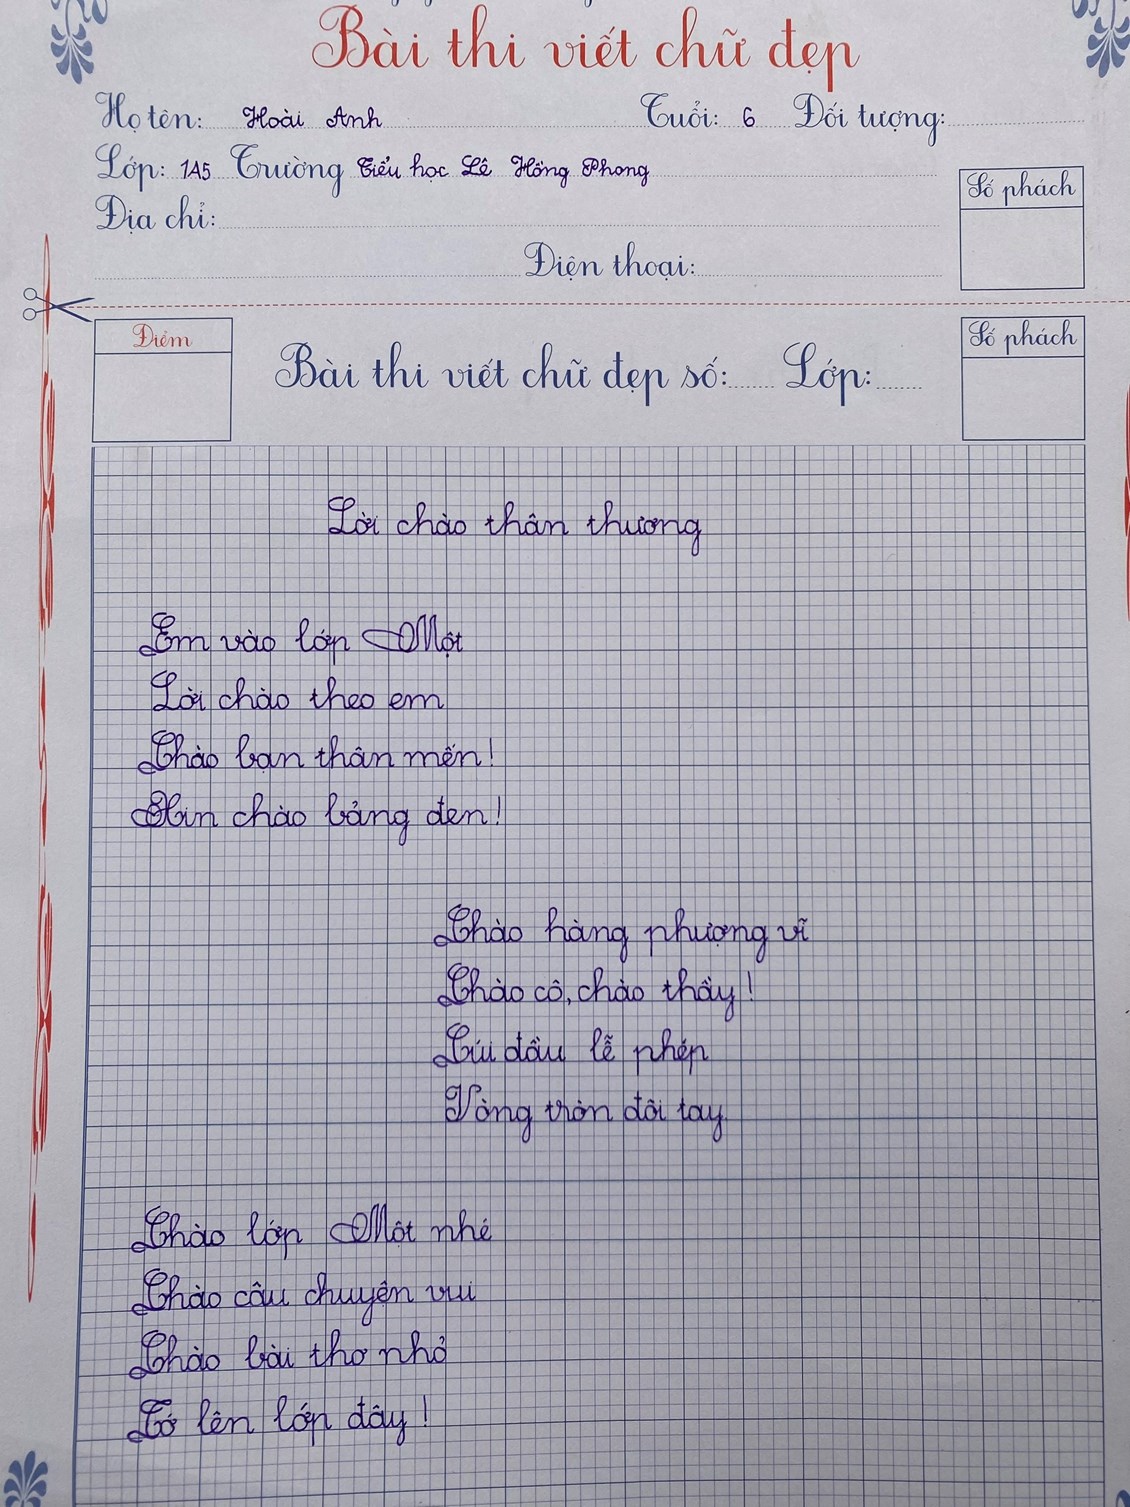 Bài thi viết chữ đẹp
Họ tên: Hoài Anh Tuổi: 6 Đối tượng:
Lớp: 1A5 Trường Tiểu học Lê Hồng Phong
Địa chỉ:
Điện thoại:
Số phách
Điểm
Bài thi viết chữ đẹp số: Lớp:
Số phách
Lời chào thân thương
Em vào lớp Một
Lời chào theo em
Chào bạn thân mến!
Xin chào bảng đen!
Chào hàng phượng vĩ
Chào cô, chào thầy!
Cúi đầu lễ phép
Vòng tròn đôi tay
Chào lớp Một nhé
Chào câu chuyện vui
Chào bài thơ nhỏ
Tớ lên lớp đây!